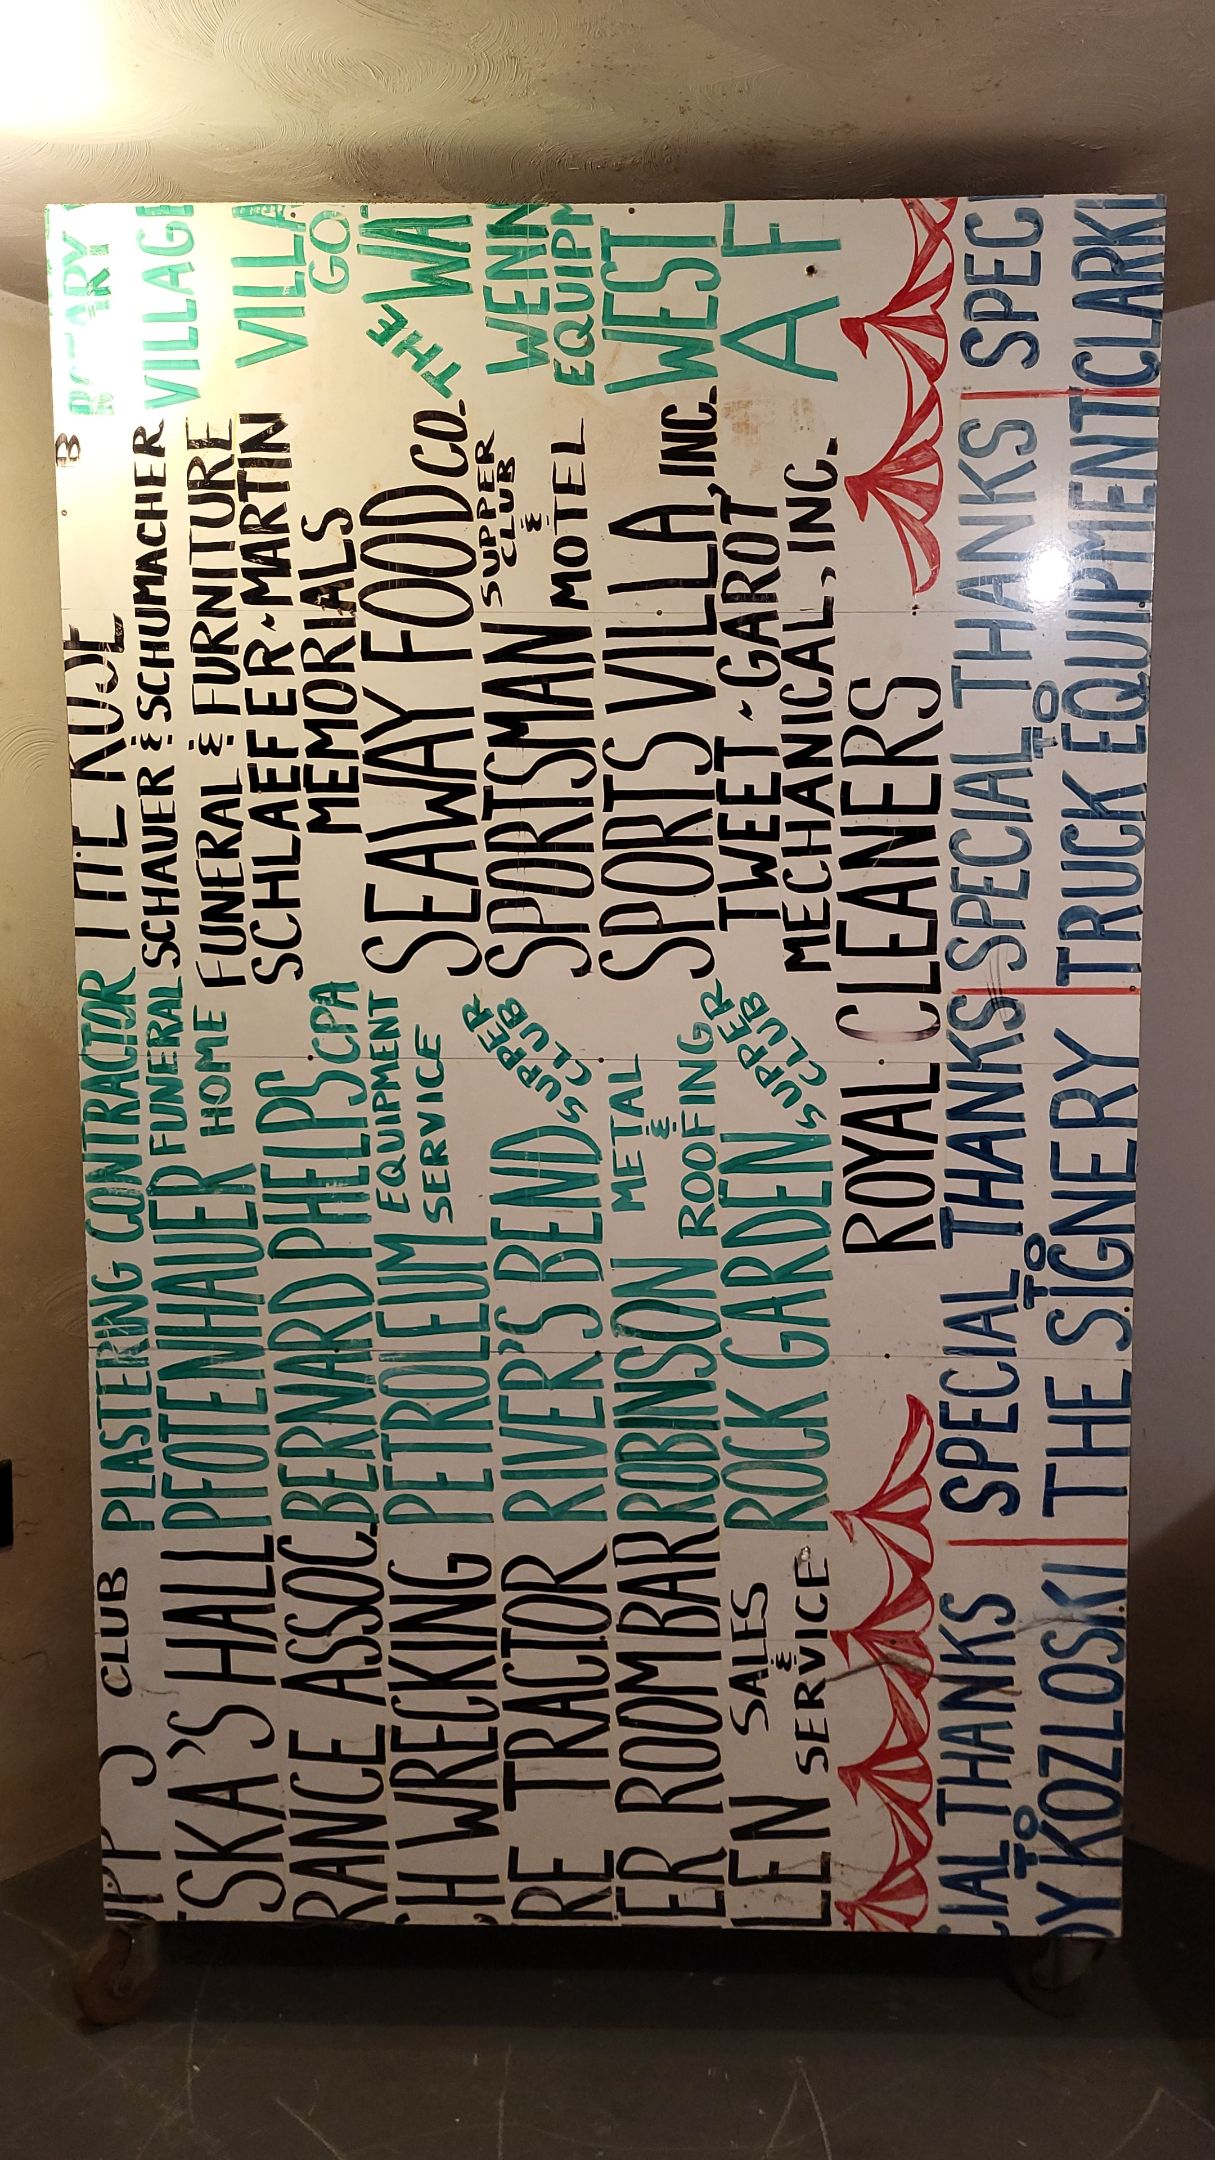 CLUB
SKA'S HALL
RANCE ASSOC.
H WRECKING
RE TRACTOR
ER ROOM BAR
LEN SALES
&
SERVICE
PLASTERING CONTRACTOR
PFOTENHAUER FUNERAL
HOME
BERNARD PHELPS CPA
PETROLEUM EQUIPMENT
SERVICE
RIVER'S BEND SUPPER
CLUB
ROBINSON METAL
&
ROOFING
ROCK GARDEN SUPPER
CLUB
THE ROSE B
SCHAUER & SCHUMACHER
FUNERAL & FURNITURE
SCHLAEFER-MARTIN
MEMORIALS
SEAWAY FOOD CO.
SPORTSMAN SUPPER
CLUB
&
MOTEL
SPORTS VILLA, INC.
TWEET-GAROT
MECHANICAL, INC.
VILLAGE
VILLA
GO
THE WA
WENN
EQUIPM
WEST
A F
ROYAL CLEANERS
CIAL THANKS
TO
DY KOZLOSKI
SPECIAL THANKS
TO
THE SIGNERY
SPECIAL THANKS
TO
TRUCK EQUIPMENT
SPEC
CLARK